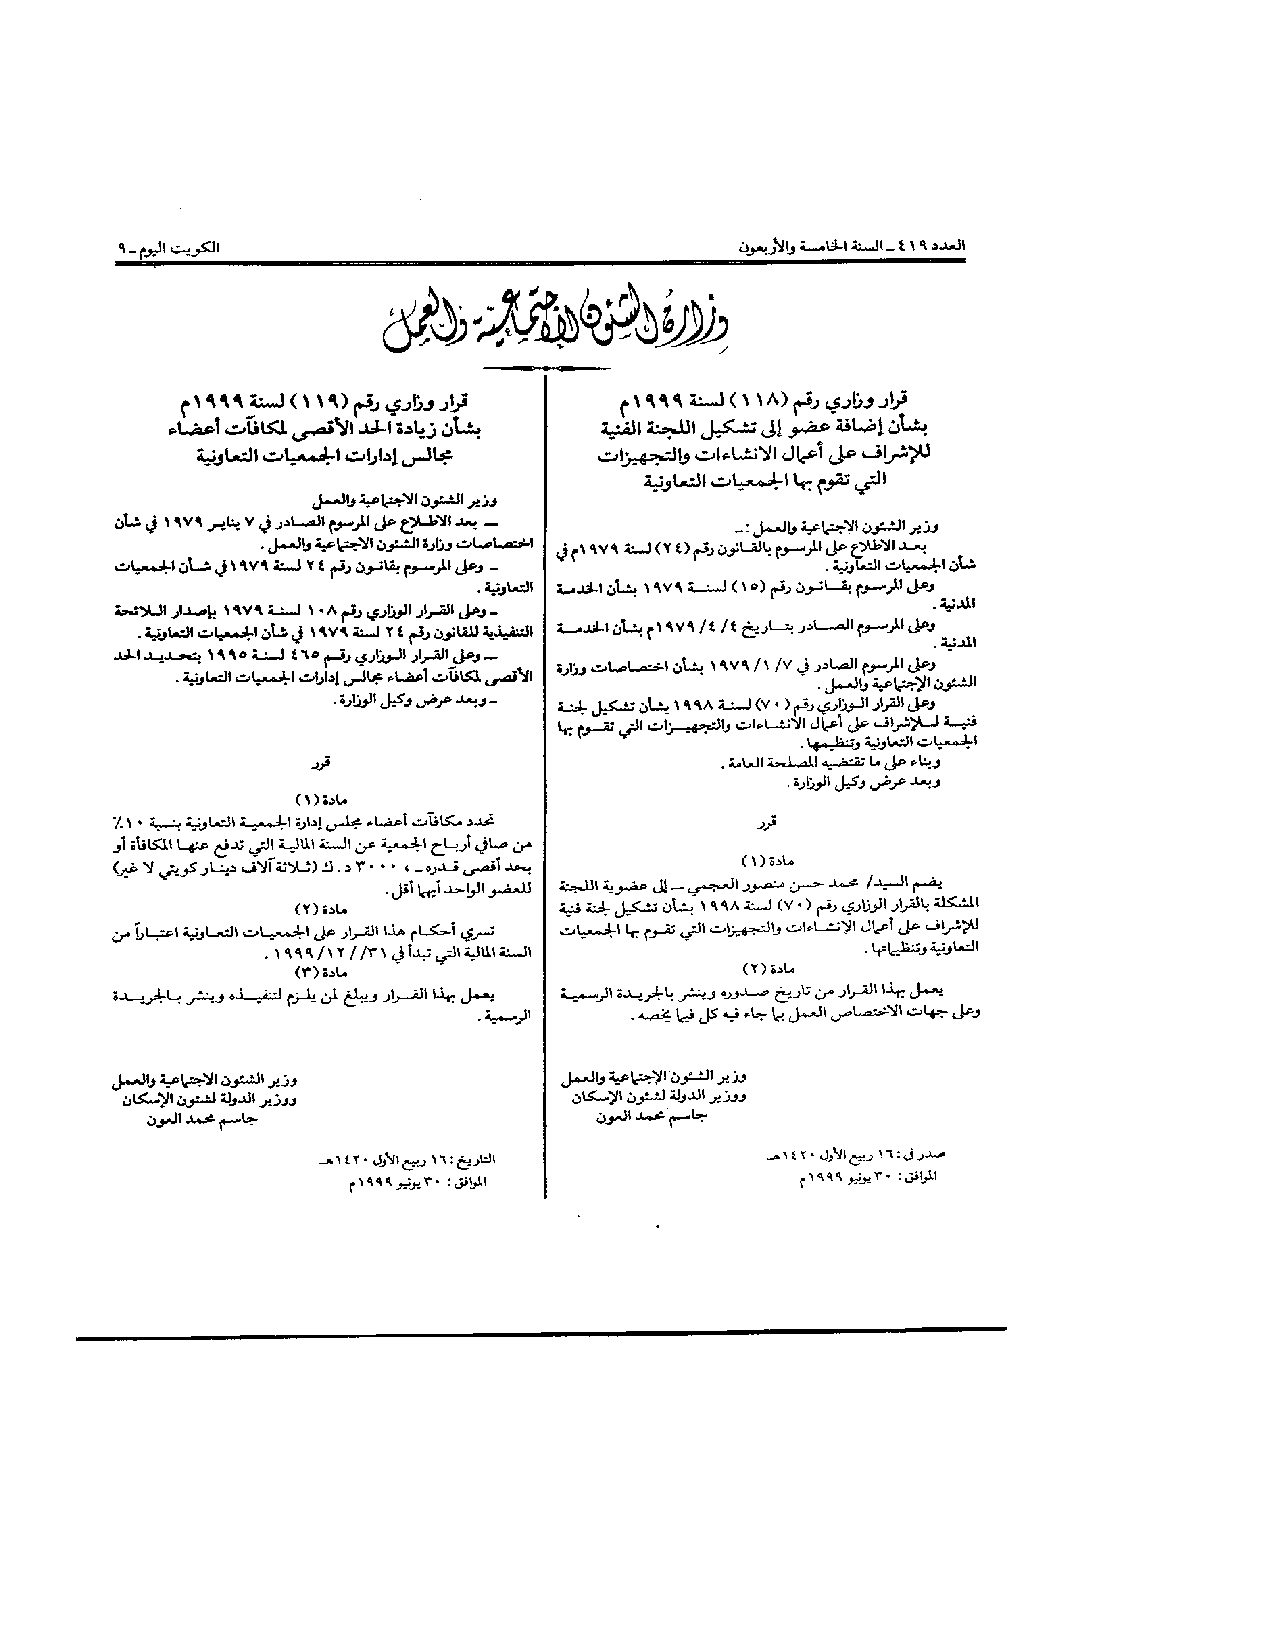 العدد ٤١٩ – السنة الخامسة والأربعون
الكويت اليوم – ٩
وزارة الشئون الاجتماعية والعمل
قرار وزاري رقم (١١٨) لسنة ١٩٩٩م
بشأن إضافة عضو إلى تشكيل اللجنة الفنية
للإشراف على أعمال الانشاءات والتجهيزات
التي تقوم بها الجمعيات التعاونية
وزير الشئون الاجتماعية والعمل :–
بعد الاطلاع على المرسوم بالقانون رقم (٢٤) لسنة ١٩٧٩م في
شأن الجمعيات التعاونية .
وعلى المرسوم بقانون رقم (١٥) لسنة ١٩٧٩ بشأن الخدمة
المدنية .
وعلى المرسوم الصادر بتاريخ ٤/ ٤/ ١٩٧٩م بشأن الخدمة
المدنية .
وعلى المرسوم الصادر في ٧/ ١/ ١٩٧٩ بشأن اختصاصات وزارة
الشئون الإجتماعية والعمل .
وعلى القرار الوزاري رقم (٧٠) لسنة ١٩٩٨ بشأن تشكيل لجنة
فنية للإشراف على أعمال الانشاءات والتجهيزات التي تقوم بها
الجمعيات التعاونية وتنظيمها .
وبناء على ما تقتضيه المصلحة العامة .
وبعد عرض وكيل الوزارة .
قرر
مادة (١)
يضم السيد/ محمد حسن منصور العجمي – إلى عضوية اللجنة
المشكلة بالقرار الوزاري رقم (٧٠) لسنة ١٩٩٨ بشأن تشكيل لجنة فنية
للإشراف على أعمال الإنشاءات والتجهيزات التي تقوم بها الجمعيات
التعاونية وتنظيماتها .
مادة (٢)
يعمل بهذا القرار من تاريخ صدوره وينشر بالجريدة الرسمية
وعلى جهات الاختصاص العمل بما جاء فيه كل فيما يخصه .
وزير الشئون الإجتماعية والعمل
ووزير الدولة لشئون الإسكان
جاسم محمد العون
صدر في : ١٦ ربيع الأول ١٤٢٠هـ
الموافق : ٣٠ يونيو ١٩٩٩م
قرار وزاري رقم (١١٩) لسنة ١٩٩٩م
بشأن زيادة الحد الأقصى لمكافآت أعضاء
مجالس إدارات الجمعيات التعاونية
وزير الشئون الاجتماعية والعمل
– بعد الاطلاع على المرسوم الصادر في ٧ يناير ١٩٧٩ في شأن
اختصاصات وزارة الشئون الاجتماعية والعمل .
– وعلى المرسوم بقانون رقم ٢٤ لسنة ١٩٧٩ في شأن الجمعيات
التعاونية .
– وعلى القرار الوزاري رقم ١٠٨ لسنة ١٩٧٩ بإصدار اللائحة
التنفيذية للقانون رقم ٢٤ لسنة ١٩٧٩ في شأن الجمعيات التعاونية .
– وعلى القرار الوزاري رقم ٤٦٥ لسنة ١٩٩٥ بتحديد الحد
الأقصى لمكافآت أعضاء مجالس إدارات الجمعيات التعاونية .
– وبعد عرض وكيل الوزارة .
قرر
مادة (١)
تحدد مكافآت أعضاء مجلس إدارة الجمعية التعاونية بنسبة ١٠٪
من صافي أرباح الجمعية عن السنة المالية التي تدفع عنها المكافأة أو
بحد أقصى قدره – ، ٣٠٠٠ د . ك (ثلاثة آلاف دينار كويتي لا غير)
للعضو الواحد أيهما أقل .
مادة (٢)
تسري أحكام هذا القرار على الجمعيات التعاونية اعتباراً من
السنة المالية التي تبدأ في ٣١/ /١٢/ ١٩٩٩ .
مادة (٣)
يعمل بهذا القرار ويبلغ لمن يلزم لتنفيذه وينشر بالجريدة
الرسمية .
وزير الشئون الاجتماعية والعمل
ووزير الدولة لشئون الإسكان
جاسم محمد العون
التاريخ : ١٦ ربيع الأول ١٤٢٠هـ
الموافق : ٣٠ يونيو ١٩٩٩م